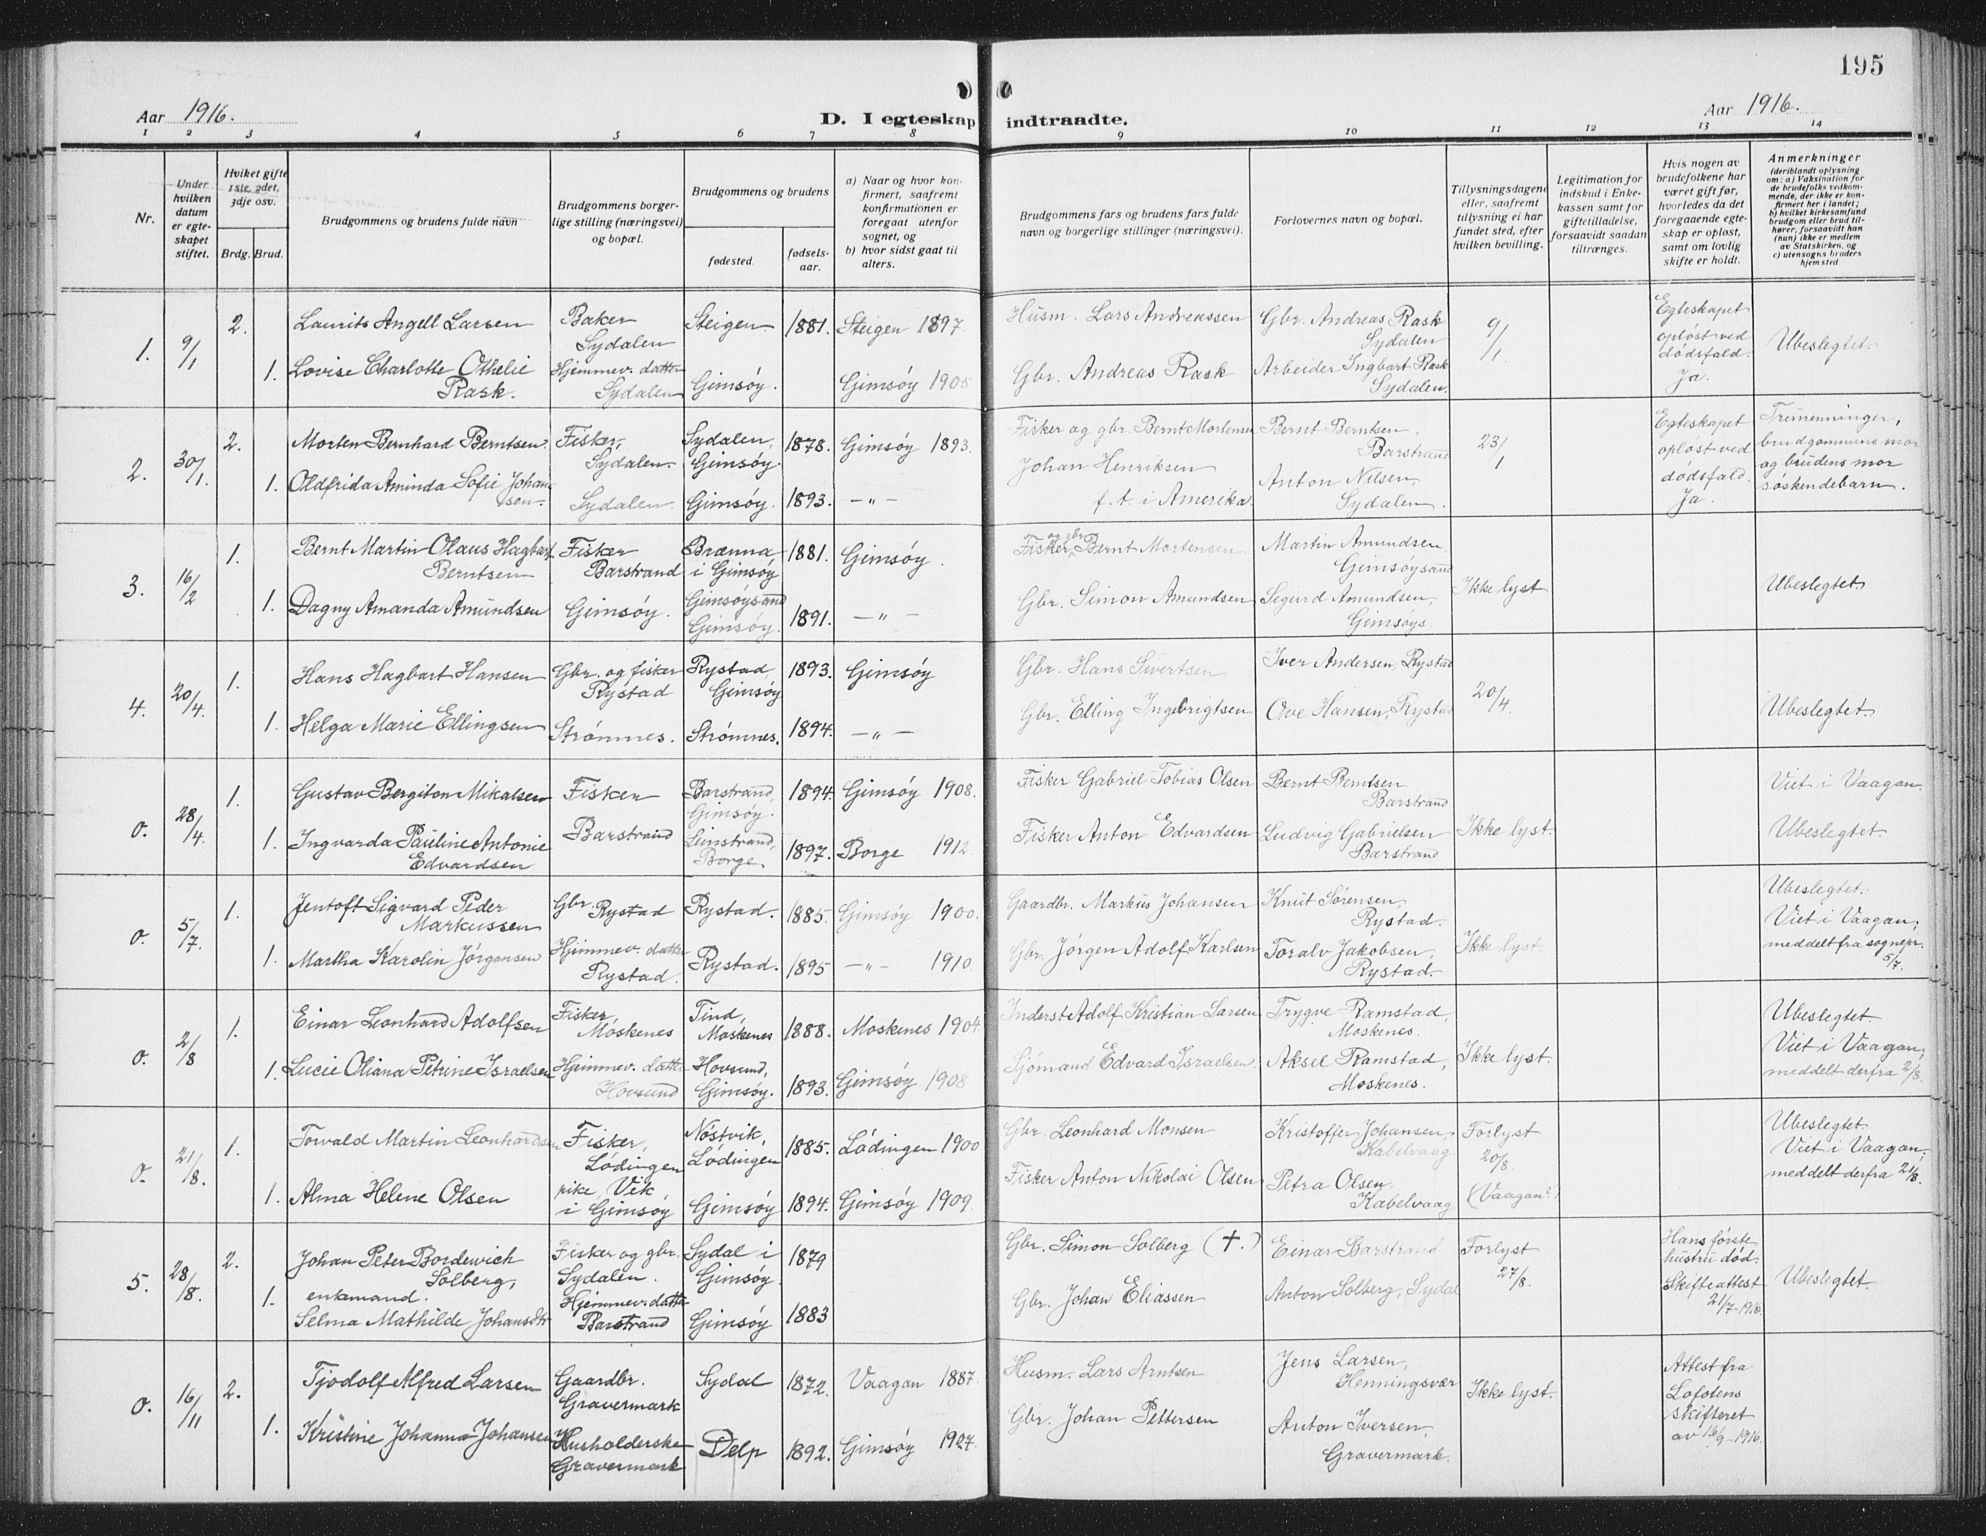 195
Aar 1916.
D. I egteskap indtraadte.
Aar 1916.
1 2 3 4 5 6 7 8 9 10 11 12 13 14
Nr.
Under hvilken datum er egteskapet stiftet.
Hviket gifte 1ste, 2det, 3dje osv.
Brdg. Brud.
Brudgommens og brudens fulde navn
Brudgommens borgerlige stilling (næringsvei) og bopæl.
Brudgommens og brudens
fødested.
fødselsaar.
a) Naar og hvor konfirmert, saafremt konfirmationen er foregaat utenfor sognet, og
b) hvor sidst gaat til alters.
Brudgommens fars og brudens fars fulde navn og borgerlige stillinger (næringsvei).
Forlovernes navn og bopæl.
Tillysningsdagene eller, saafremt tillysning ei har fundet sted, efter hvilken bevilling.
Legitimation for indskud i Enkekassen samt for giftetilladelse, forsaavidt saadan tiltrænges.
Hvis nogen av brudefolkene har været gift før, hvorledes da det foregaaende egteskap er opløst, samt om lovlig skifte er holdt.
Anmerkninger
(deriblandt oplysning om: a) Vaksination for de brudefolks vedkommende, der ikke er konfirmert her i landet; b) hvilket kirkesamfund brudgom eller brud tilhører, forsaavidt han (hun) ikke er medlem av Statskirken, og c) utensogns bruders hjemsted
1. 9/1 2. Laurits Angell Larsen Baker Sydalen Steigen 1881. Steigen 1897. Husm. Lars Andreassen Gbr. Andreas Rask Sydalen 9/1 Egteskapet opløst ved dødsfald. Ja. Ubeslegtet.
1. Lovise Charlotte Othelie Rask. Hjemmev. datter Sydalen Gimsøy. Gimsøy 1905 Gbr. Andreas Rask Arbeider Ingbart Rask Sydalen.
2. 30/1. 2. Morten Bernhard Berntsen Fisker, Sydalen. Sydalen, Gimsøy. 1878. Gimsøy 1893. Fisker og gbr. Bernt Mortensen Bernt Berntsen, Barstrand 23/1 Egteskapet opløst ved dødsfald. Ja. Tremenninger, brudgommens mor og brudens mor søskendebarn.
1. Oldfrida Aminda Sofie Johansen. Sydalen. Gimsøy. 1893. —"— Johan Henriksen f. t. i Amerika. Anton Nilsen, Sydalen.
3. 16/2 1. Bernt Martin Olaus Hagbart Berntsen Fisker Barstrand Brænna i Gimsøy 1881. Gimsøy. Fisker og gbr. Bernt Mortensen Martin Amundsen, Gimsøysand Ikke lyst Ubeslegtet.
1. Dagny Amanda Amundsen Gimsøy. Gimsøysand Gimsøy. 1891. —"— Gbr. Simon Amundsen Sigurd Amundsen, Gimsøys.
4. 20/4. 1. Hans Hagbart Hansen Gbr. og fisker Rystad Rystad, Gimsøy 1893. Gimsøy Gbr. Hans Sivertsen Iver Andersen, Rystad 20/4. Ubeslegtet.
1. Helga Marie Ellingsen Strømnes. Strømnes. 1894. —"— Gbr. Elling Ingebrigtsen Ove Hansen, Rystad
0. 28/4. 1. Gustav Bergiton Mikalsen Fisker Barstrand Barstrand, Gimsøy. 1894. Gimsøy 1908. Fisker Gabriel Tobias Olsen Bernt Berntsen Barstrand Ikke lyst. Viet i Vaagan. Ubeslegtet.
1. Ingvarda Pauline Antonie Edvardsen Leinstrand, Borge. 1897. Borge 1912. Fisker Anton Edvardsen Ludvig Gabrielsen Barstrand
0. 5/7. 1. Jentoft Sigvard Peder Markussen Gbr. Rystad Rystad. 1885. Gimsøy 1900. Gaardbr. Markus Johansen Knut Sørensen, Rystad. Ikke lyst. Ubeslegtet. Viet i Vaagan, meddelt fra sognepr. 5/7.
1. Martha Karolin Jørgensen Hjemmev. datter Rystad. Rystad. 1895 —"— 1910. Gbr. Jørgen Adolf Karlsen Toralv Jakobsen, Rystad.
0. 2/8 1. Einar Leonhard Adolfsen Fisker, Moskenes Tind, Moskenes 1888. Moskenes 1904. Inderst Adolf Kristian Larsen Trygve Ramstad, Moskenes. Ikke lyst. Ubeslegtet Viet i Vaagan, meddelt derfra 2/8.
1. Lucie Oliana Petrine Israelsen Hjemmev. datter Hovsund Hovsund, Gimsøy. 1893. Gimsøy 1908 Sjømand Edvard Israelsen Aksel Ramstad, Moskenes.
0. 21/8. 1. Torvald Martin Leonhardsen Fisker, Lødingen Nøstvik, Lødingen 1885. Lødingen 1900 Gbr. Leonhard Monsen Kristoffer Johansen, Kabelvaag. Forlyst 20/8. (Vaagan?) Ubeslegtet. Viet i Vaagan, meddelt derfra 21/8.
1. Alma Helene Olsen pike, Vik i Gimsøy Gimsøy 1894. Gimsøy 1909. Fisker Anton Nikolai Olsen Petra Olsen, Kabelvaag
5. 28/8. 2. Johan Peter Bordewich Solberg, enkemand. Fisker og gbr. Sydalen. Sydal i Gimsøy. 1879 Gbr. Simon Solberg (✝.) Einar Barstrand Forlyst 27/8. Hans første hustru død. Skifteattest 21/7-1916. Ubeslegtet.
1. Selma Mathilde Johansdtr Hjemmev. datter Barstrand Gimsøy 1883 Gbr. Johan Eliassen Anton Solberg, Sydal
0. 16/11 2. Tjodolf Alfred Larsen Gaardbr. Gravermark Sydal 1872. Vaagan 1887. Husm. Lars Arntsen Jens Larsen, Henningsvær Ikke lyst. Attest fra Lofotens skifteret av 16/9-1916.
1. Kristine Johanna Johansen Husholderske Gravermark Delp 1892. Gimsøy 1907. Gbr. Johan Pettersen Anton Iversen, Gravermark.